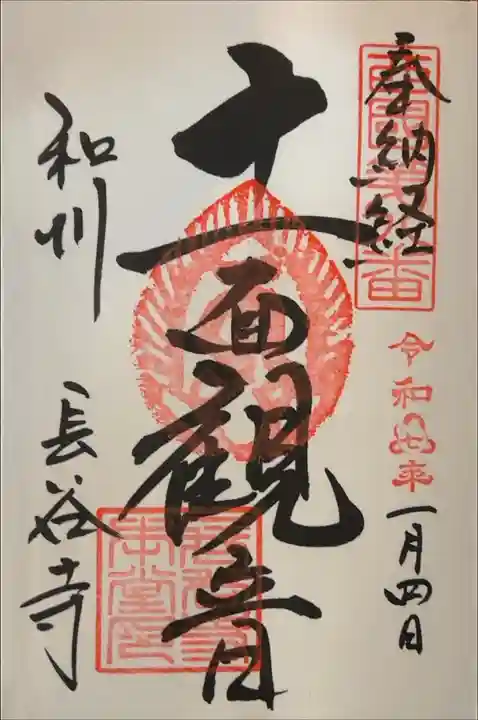 奉納経
令和七年一月四日
十一面観音
和州 長谷寺